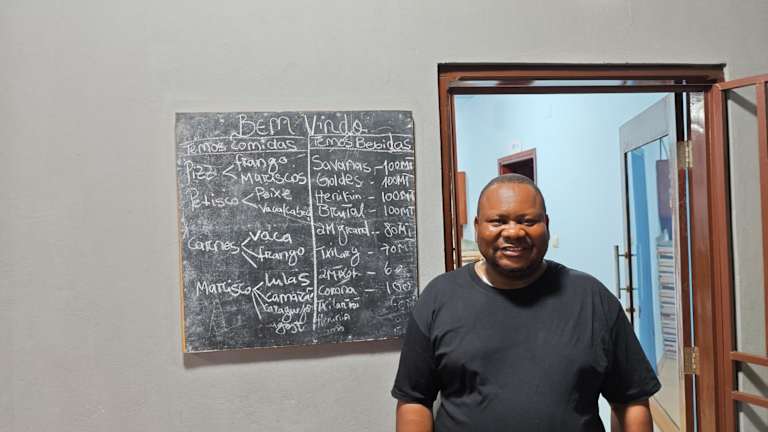 BEM Vindo
Temos comidas
Pizz
frango
Mariscos
Petisco
Peixe
Vaca/cabri
Carnes
vaca
frango
Marisco
Lulas
camarão
caraguejo
Temos Bebidas
Savanas - 100MT
Goldes - 100MT
Henikin - 100MT
Brutal - 100MT
2M grand - 80MT
Txilary - 70MT
Corona - 100